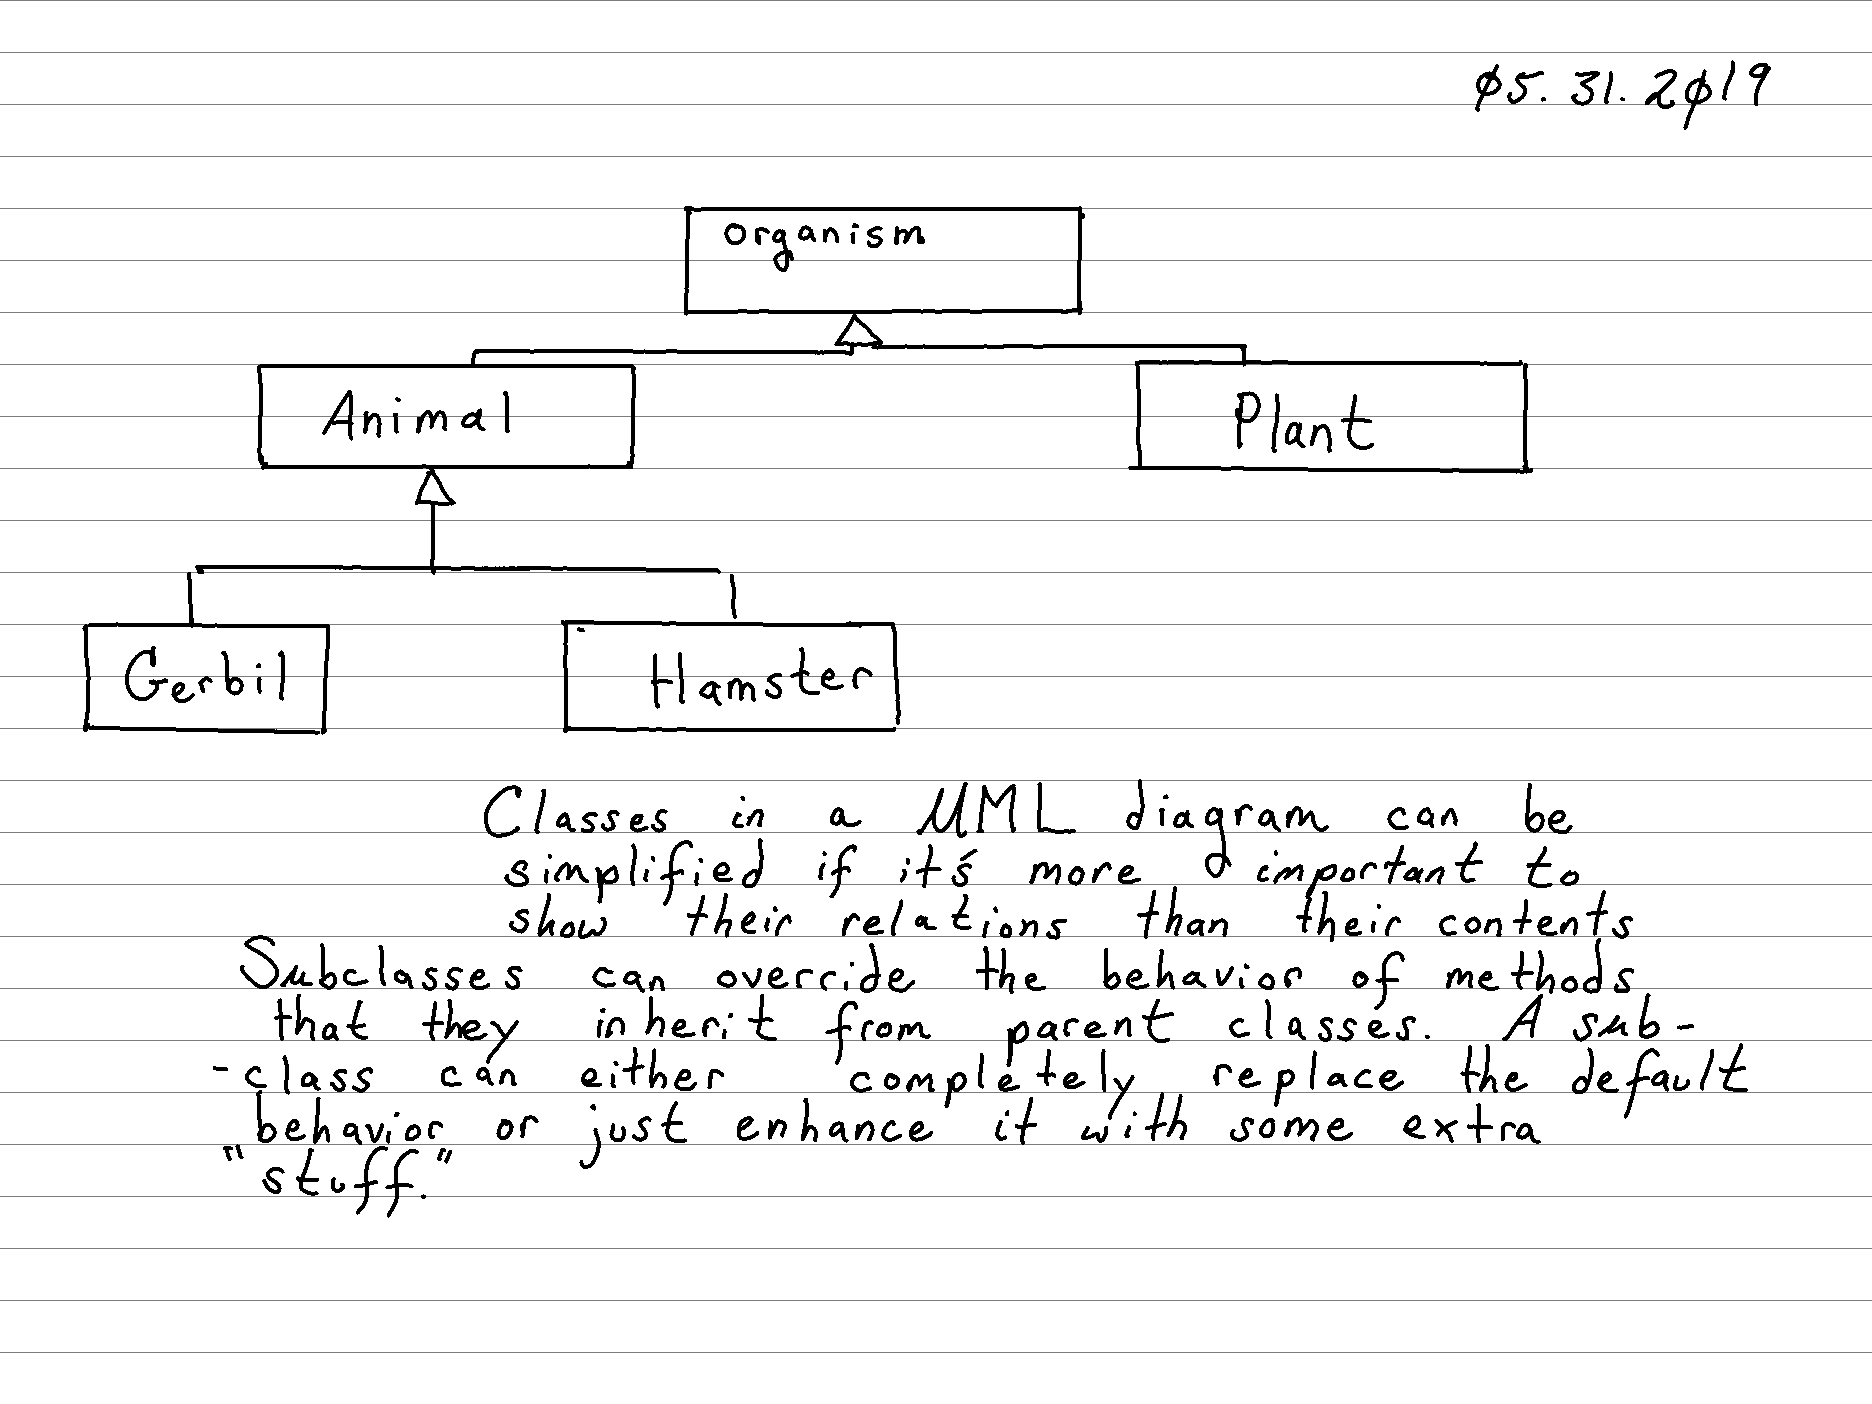 05. 31. 2019
organism
Animal
Plant
Gerbil
Hamster
Classes in a UML diagram can be
simplified if it's more important to
show their relations than their contents
Subclasses can override the behavior of methods
that they inherit from parent classes. A sub-
-class can either completely replace the default
behavior or just enhance it with some extra
"stuff."